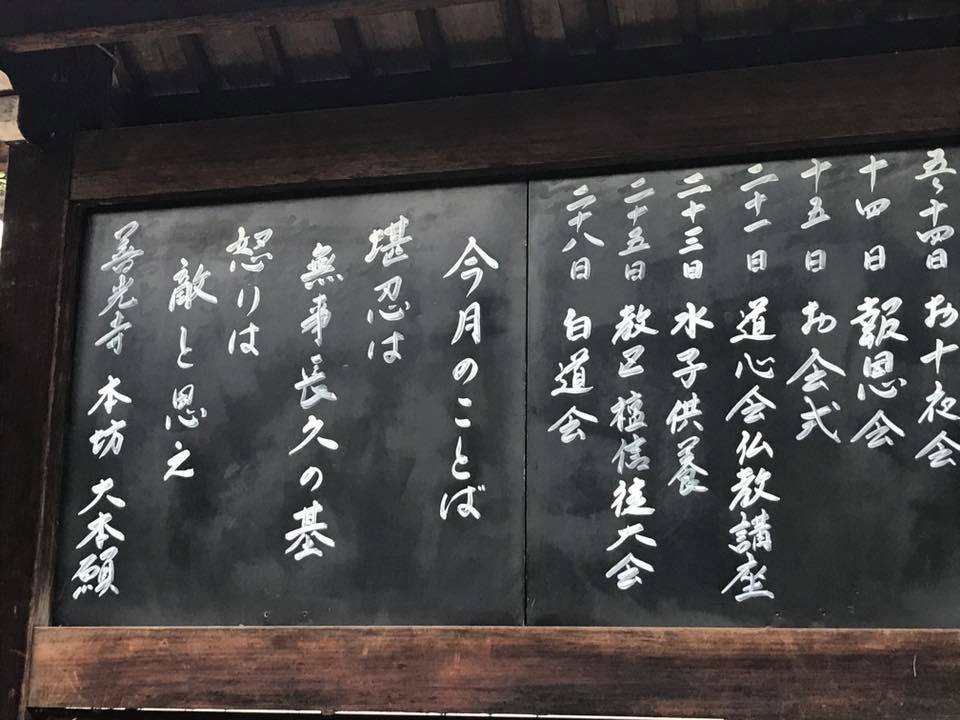 五〜十四日 お十夜会
十四日 報恩会
十五日 お会式
二十一日 道心会仏教講座
二十三日 水子供養
二十五日 教区檀信徒大会
二十八日 白道会
今月のことば
堪忍は
無事長久の基
怒りは
敵と思え
善光寺 本坊 大本願